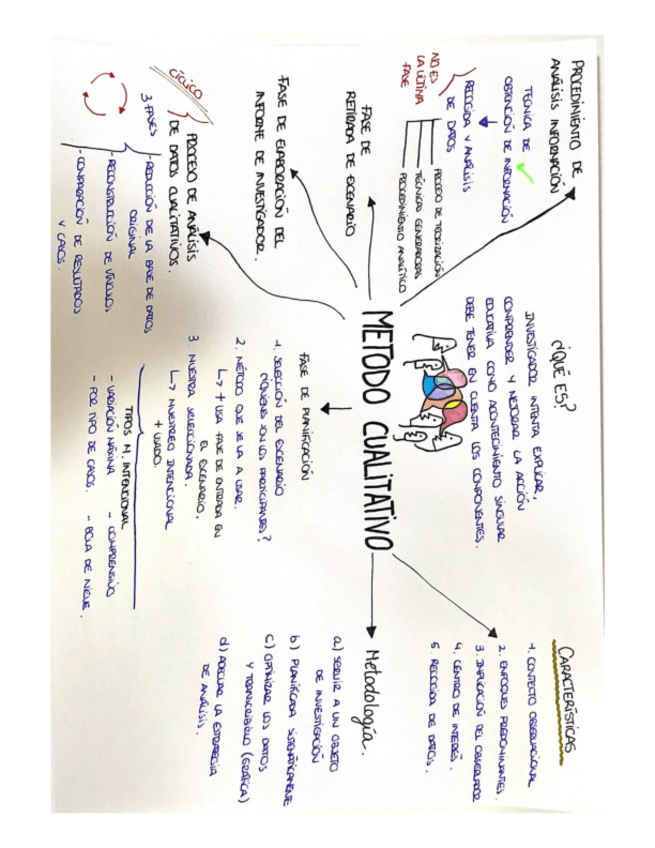 METODO CUALITATIVO
¿QUÉ ES?
INVESTIGADOR INTENTA EXPLICAR,
COMPRENDER Y MEJORAR LA ACCIÓN
EDUCATIVA COMO ACONTECIMIENTO SINGULAR
DEBE TENER EN CUENTA LOS COMPONENTES.
CARACTERÍSTICAS
1. CONTEXTO OBSERVACIONAL
2. ENFOQUES PREDOMINANTES.
3. IMPLICACIÓN DEL OBSERVADOR
4. CENTRO DE INTERÉS.
5. RECOGIDA DE DATOS.
Metodología.
a) SERVIR A UN OBJETO
DE INVESTIGACIÓN
b) PLANIFICADA SISTEMÁTICAMENTE
c) OPTIMIZAR LOS DATOS
Y TRANSCRIBIRLO (GRÁFICA)
d) ADECUAR LA ESTRATEGIA
DE ANÁLISIS.
FASE DE PLANIFICACIÓN
1. SELECCIÓN DEL ESCENARIO
¿QUIÉNES SON LOS PARTICIPANTES?
2. MÉTODO QUE SE VA A USAR.
↳ + USA FASE DE ENTRADA EN
EL ESCENARIO.
3. NUESTRA SELECCIONADA.
↳ MUESTREO INTENCIONAL
+ USADO.
TIPOS M. INTENCIONAL
- VARIACIÓN MÁXIMA - COMPRENSIVO
- POR TIPO DE CASOS. - BOLA DE NIEVE.
PROCEDIMIENTO DE
ANÁLISIS INFORMACIÓN
TÉCNICA DE
OBTENCIÓN DE INFORMACIÓN
RECOGIDA Y ANÁLISIS
DE DATOS
NO ES
LA ÚLTIMA
FASE
PROCESO DE TEORIZACIÓN
TÉCNICAS GENERADORAS
PROCEDIMIENTO ANALÍTICO
FASE DE
RETIRADA DE ESCENARIO
FASE DE ELABORACIÓN DEL
INFORME DE INVESTIGADOR.
CÍCLICO
PROCESO DE ANÁLISIS
DE DATOS CUALITATIVOS.
3 FASES
- REDUCCIÓN DE LA BASE DE DATOS
ORIGINAL
- RECONSTRUCCIÓN DE VÍNCULOS
- COMPARACIÓN DE RESULTADOS
Y CASOS.